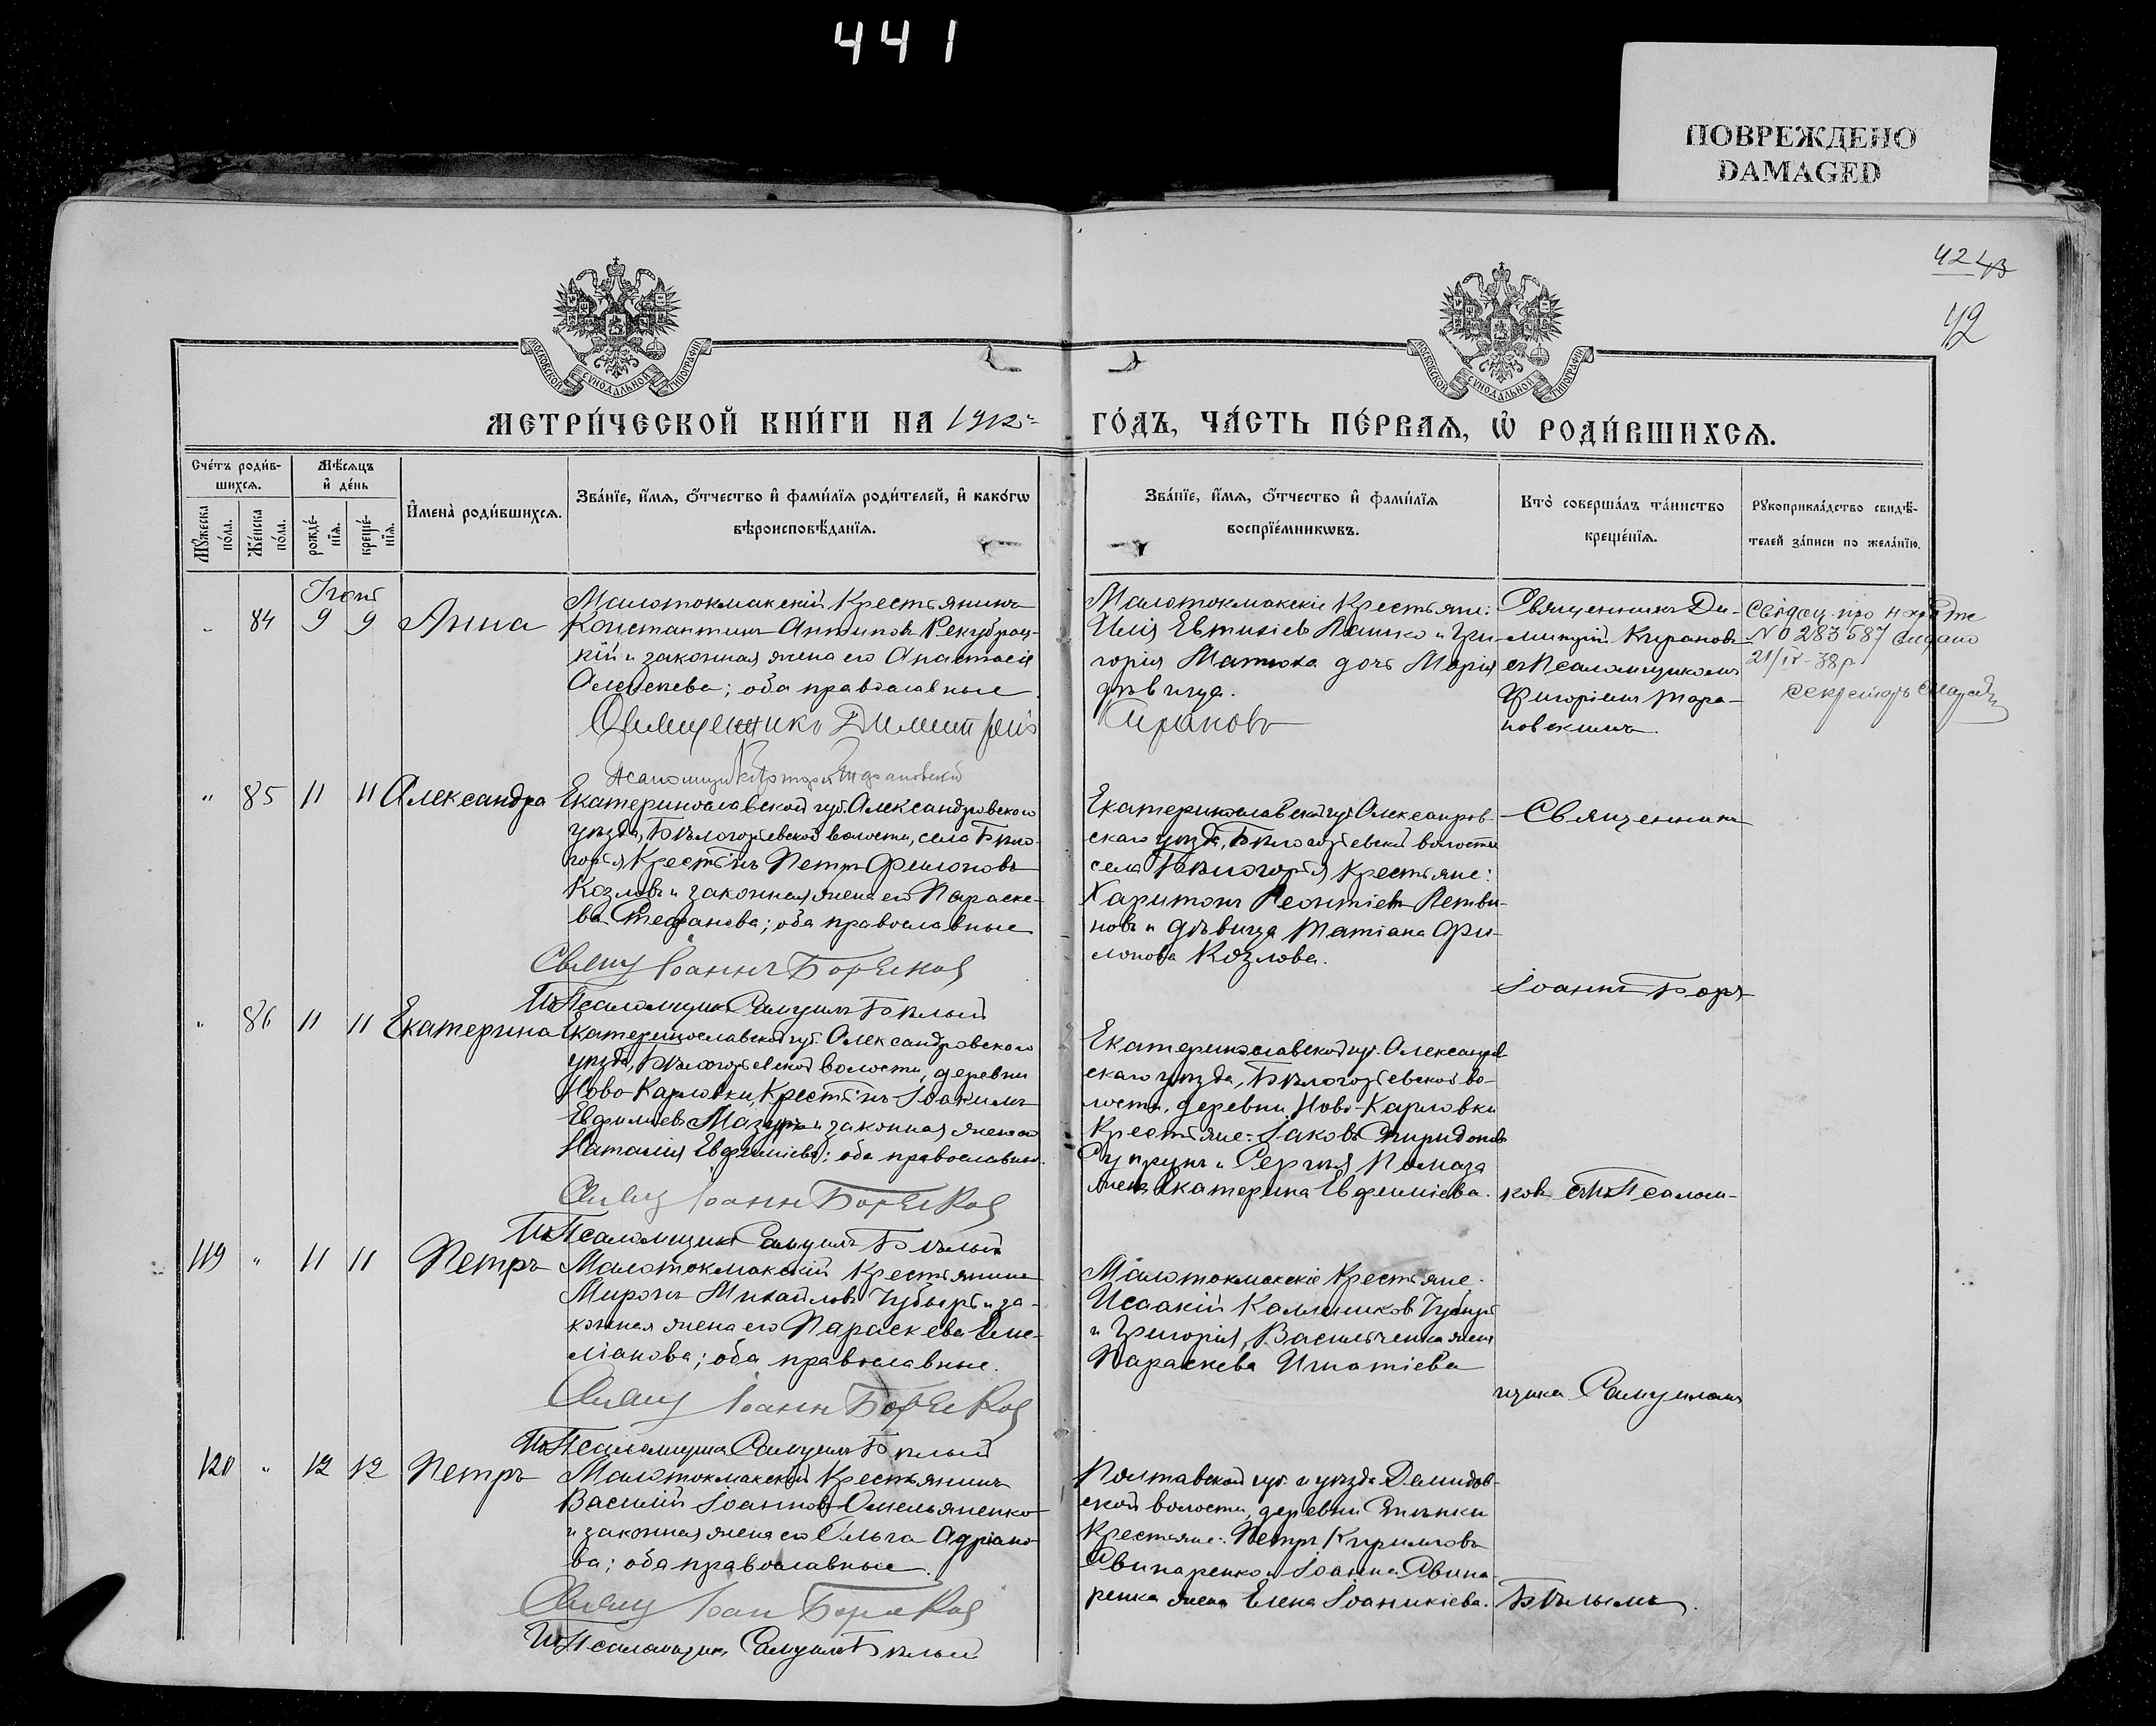 441
ПОВРЕЖДЕНО
DAMAGED
42 43
42
МОСКОВСКОЙ СѴНОДАЛЬНОЙ ТИПОГРАФІИ
МОСКОВСКОЙ СѴНОДАЛЬНОЙ ТИПОГРАФІИ
МЕТРИ́ЧЕСКОЙ КНИ́ГИ НА 1912
ГО́ДЪ, ЧА́СТЬ ПЕ́РВАѦ, Ѡ҆ РОДИ́ВШИХСѦ.
Сче́тъ роди́в-
шихсѧ.
Мꙋ́жеска по́ла.
Же́нска по́ла.
Мѣ́сѧцъ
и҆ де́нь
рожде́-
нїѧ.
креще́-
нїѧ.
И҆мена̀ роди́вшихсѧ.
Зва́нїе, и҆́мѧ, ѻ҆́тчество и҆ фами́лїѧ роди́телей, и҆ како́гѡ
вѣроисповѣ́данїѧ.
Зва́нїе, и҆́мѧ, ѻ҆́тчество и҆ фами́лїѧ
воспрїе́мникѡвъ.
Кто̀ соверша́лъ та́инство
креще́нїѧ.
Рꙋкоприкла́дство свидѣ́-
телей за́писи по жела́нїю.
Іюнь
84 9 9 Анна
Малотокмакскій Крестьянинъ
Константинъ Антиповъ
кій и законная жена его Анастасія
Алексеева; оба православные
Священникъ Димитрій
Псаломщикъ Григорій Тарановскій
Малотокмакскіе Крестьяне:
Илія Евтихіевъ Ляшко и Гри-
горія Матюха дочь Марія
дѣвица.
Кирановъ
Священникъ Ди-
митрій Кирановъ
съ Псаломщикомъ
Григоріемъ Тара-
новскимъ
№ 283587 видано
21/IV-38р
секретарь
" 85 11 11 Александра
Екатеринославской губ. Александровскаго
уѣзда, Бѣлогорьевской волости, села Бѣло-
горья Крестьянинъ Петръ Филоновъ
Козловъ и законная жена его Параске-
ва Стефанова; оба православные
Свящ Іоаннъ Боръсковъ
И. Псаломщика Самуилъ Бѣлый
Екатеринославской губ. Александров-
скаго уѣзда, Бѣлогорьевской волости
села Бѣлогорья Крестьяне:
Харитонъ Леонтіевъ Летви-
новъ и дѣвица Татіана Фи-
лонова Козлова.
Священник
Іоаннъ Борѣ-
" 86 11 11 Екатерина
Екатеринославской губ. Александровскаго
уѣзда, Бѣлогорьевской волости, деревни
Ново-Карловки, Крестьнъ Іоакимъ
Евфиміевъ Мазуръ и законная жена его
Наталія Евфиміева; оба православные.
Свящ Іоаннъ Борѣсковъ
И. Псаломщика Самуилъ Бѣлый
Екатеринославской губ. Александров-
скаго уѣзда, Бѣлогорьевской во-
лости, деревни Ново-Карловки
Крестьяне: Іаковъ Спиридоновъ
Супрунъ и Сергія Помаза
жена Екатерина Евфиміева.
ковъ съ И. Псалом-
119 " 11 11 Петръ
Малотокмакскій Крестьянинъ
Миронъ Михайловъ Чубырь и за-
конная жена его Параскева Еме-
ліанова; оба православные.
Свящ Іоаннъ Борѣсковъ
И. Псаломщика Самуилъ Бѣлый
Малотокмакскіе Крестьяне:
Исаакій Калинниковъ Чубырь
и Григорія Васильченка жена
Параскева Игнатіева
щика Самуиломъ
120 " 12 12 Петръ
Малотокмакскій Крестьянинъ
Василій Іоанновъ Омельяненко
и законная жена его Ольга Адріано-
ва; оба православные.
Свящ Іоан Борѣсковъ
И. Псаломщика Самуилъ Бѣлый
Полтавской губ. и уѣзда Демидов-
ской волости, деревни
Крестьяне: Петръ Кирилловъ
Свинаренко и Іоанна Свина-
ренка жена Елена Іоаникіева.
Бѣлымъ.